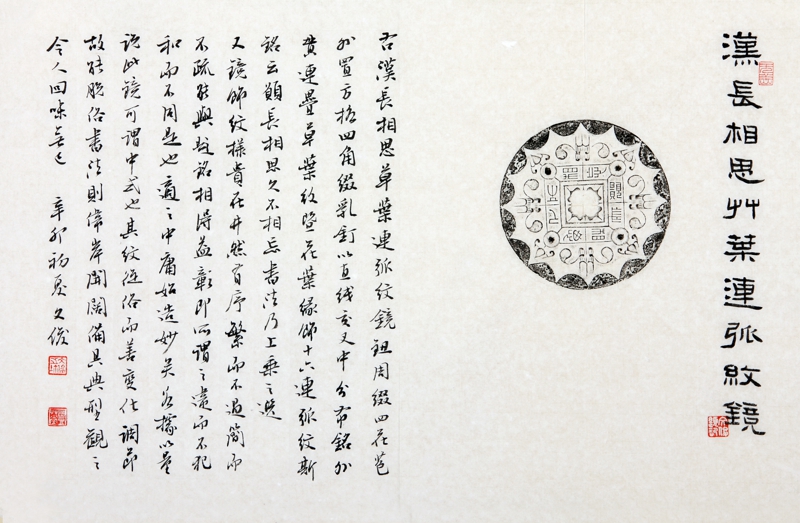 漢長相思艸葉連弧紋鏡
右漢長相思草葉連弧紋鏡鈕周綴四花苞
外置方格四角綴乳釘以直线交叉中分布銘外
貫連疊草葉紋暨花葉緣飾十六連弧紋斯
銘云願長相思久不相忘書法乃上乘之選
又鏡飾紋樣貴在井然有序繁而不過簡而
不疏能與故銘相得益彰即所謂之違而不犯
和而不同是也適之中庸始造妙矣若據以量
說此鏡可謂中式也其紋從俗而善變化調節
故能脫俗書法則偉岸開闊備具典型觀之
令人回味無已 辛卯初夏久俊